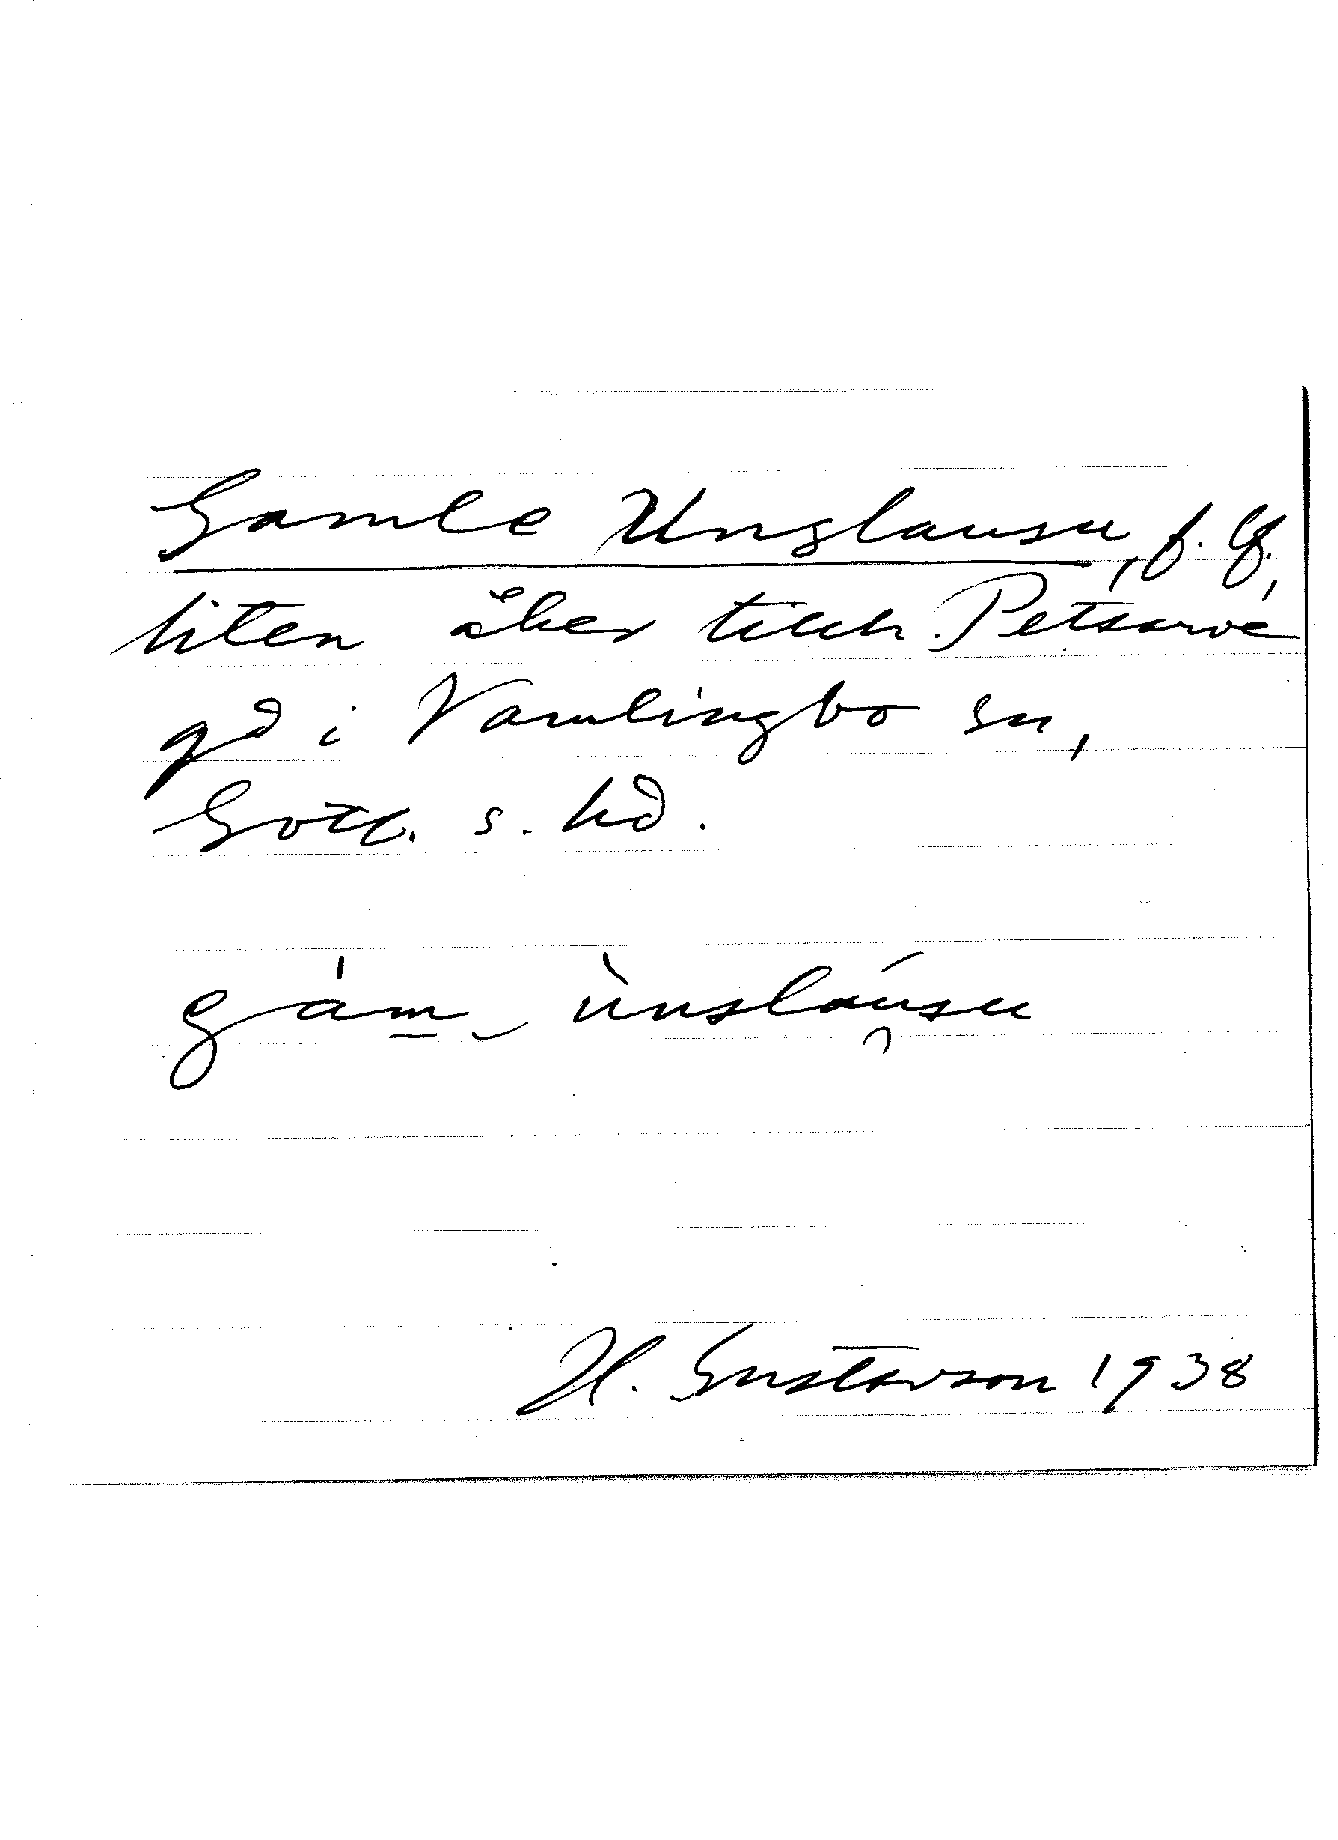 Gamle Unslausu, f. lf.,
liten åker tillh. Petsarve
gd i Vamlingbo sn,
Gotl. s. hd.
gàm ùnsláusu
H. Gustavson 1938